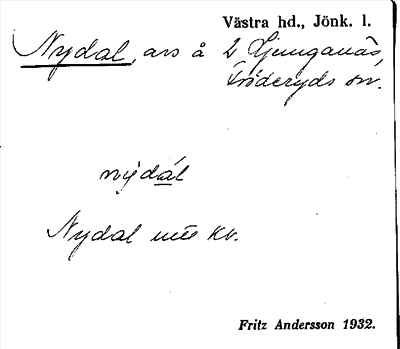 Västra hd., Jönk. l.
Nydal, avs å 2 Ljunganäs,
Fröderyds sn.
nydál
Nydal utt kv.
Fritz Andersson 1932.